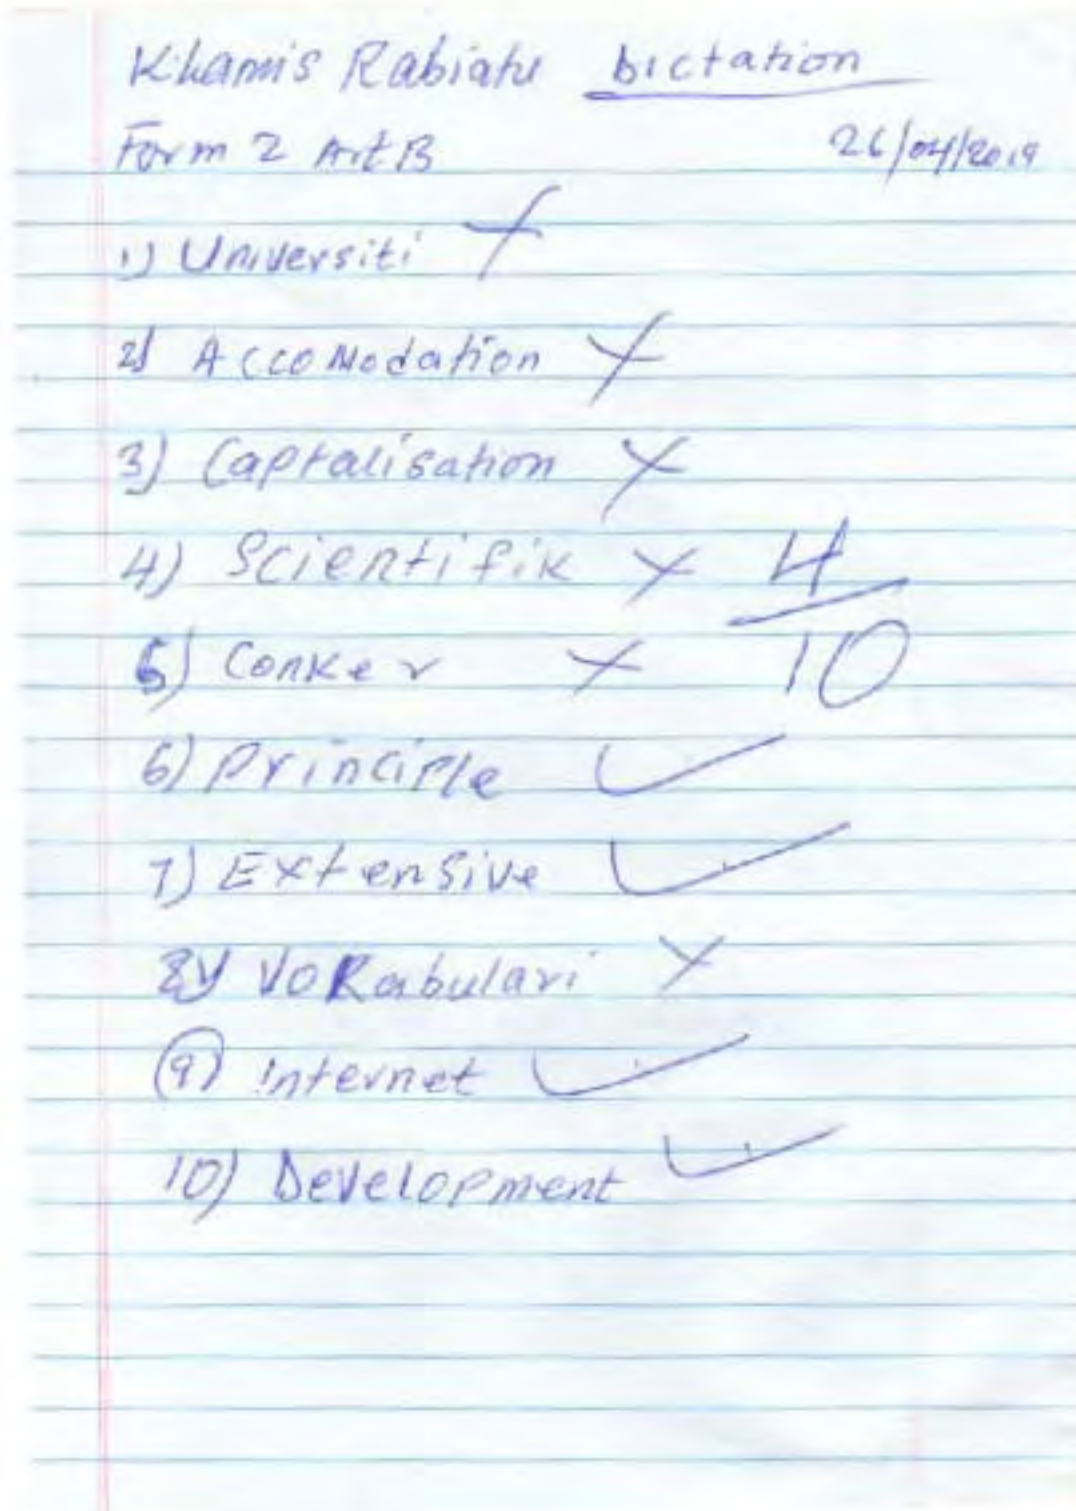 Khamis Rabiatu Dictation
Form 2 Art B 26/04/2019
1) Universiti
2) Accomodation
3) Captalisation
4) Scientifik
4/10
5) Conker
6) principle
7) Extensive
8) VoKabulari
9) internet
10) Development